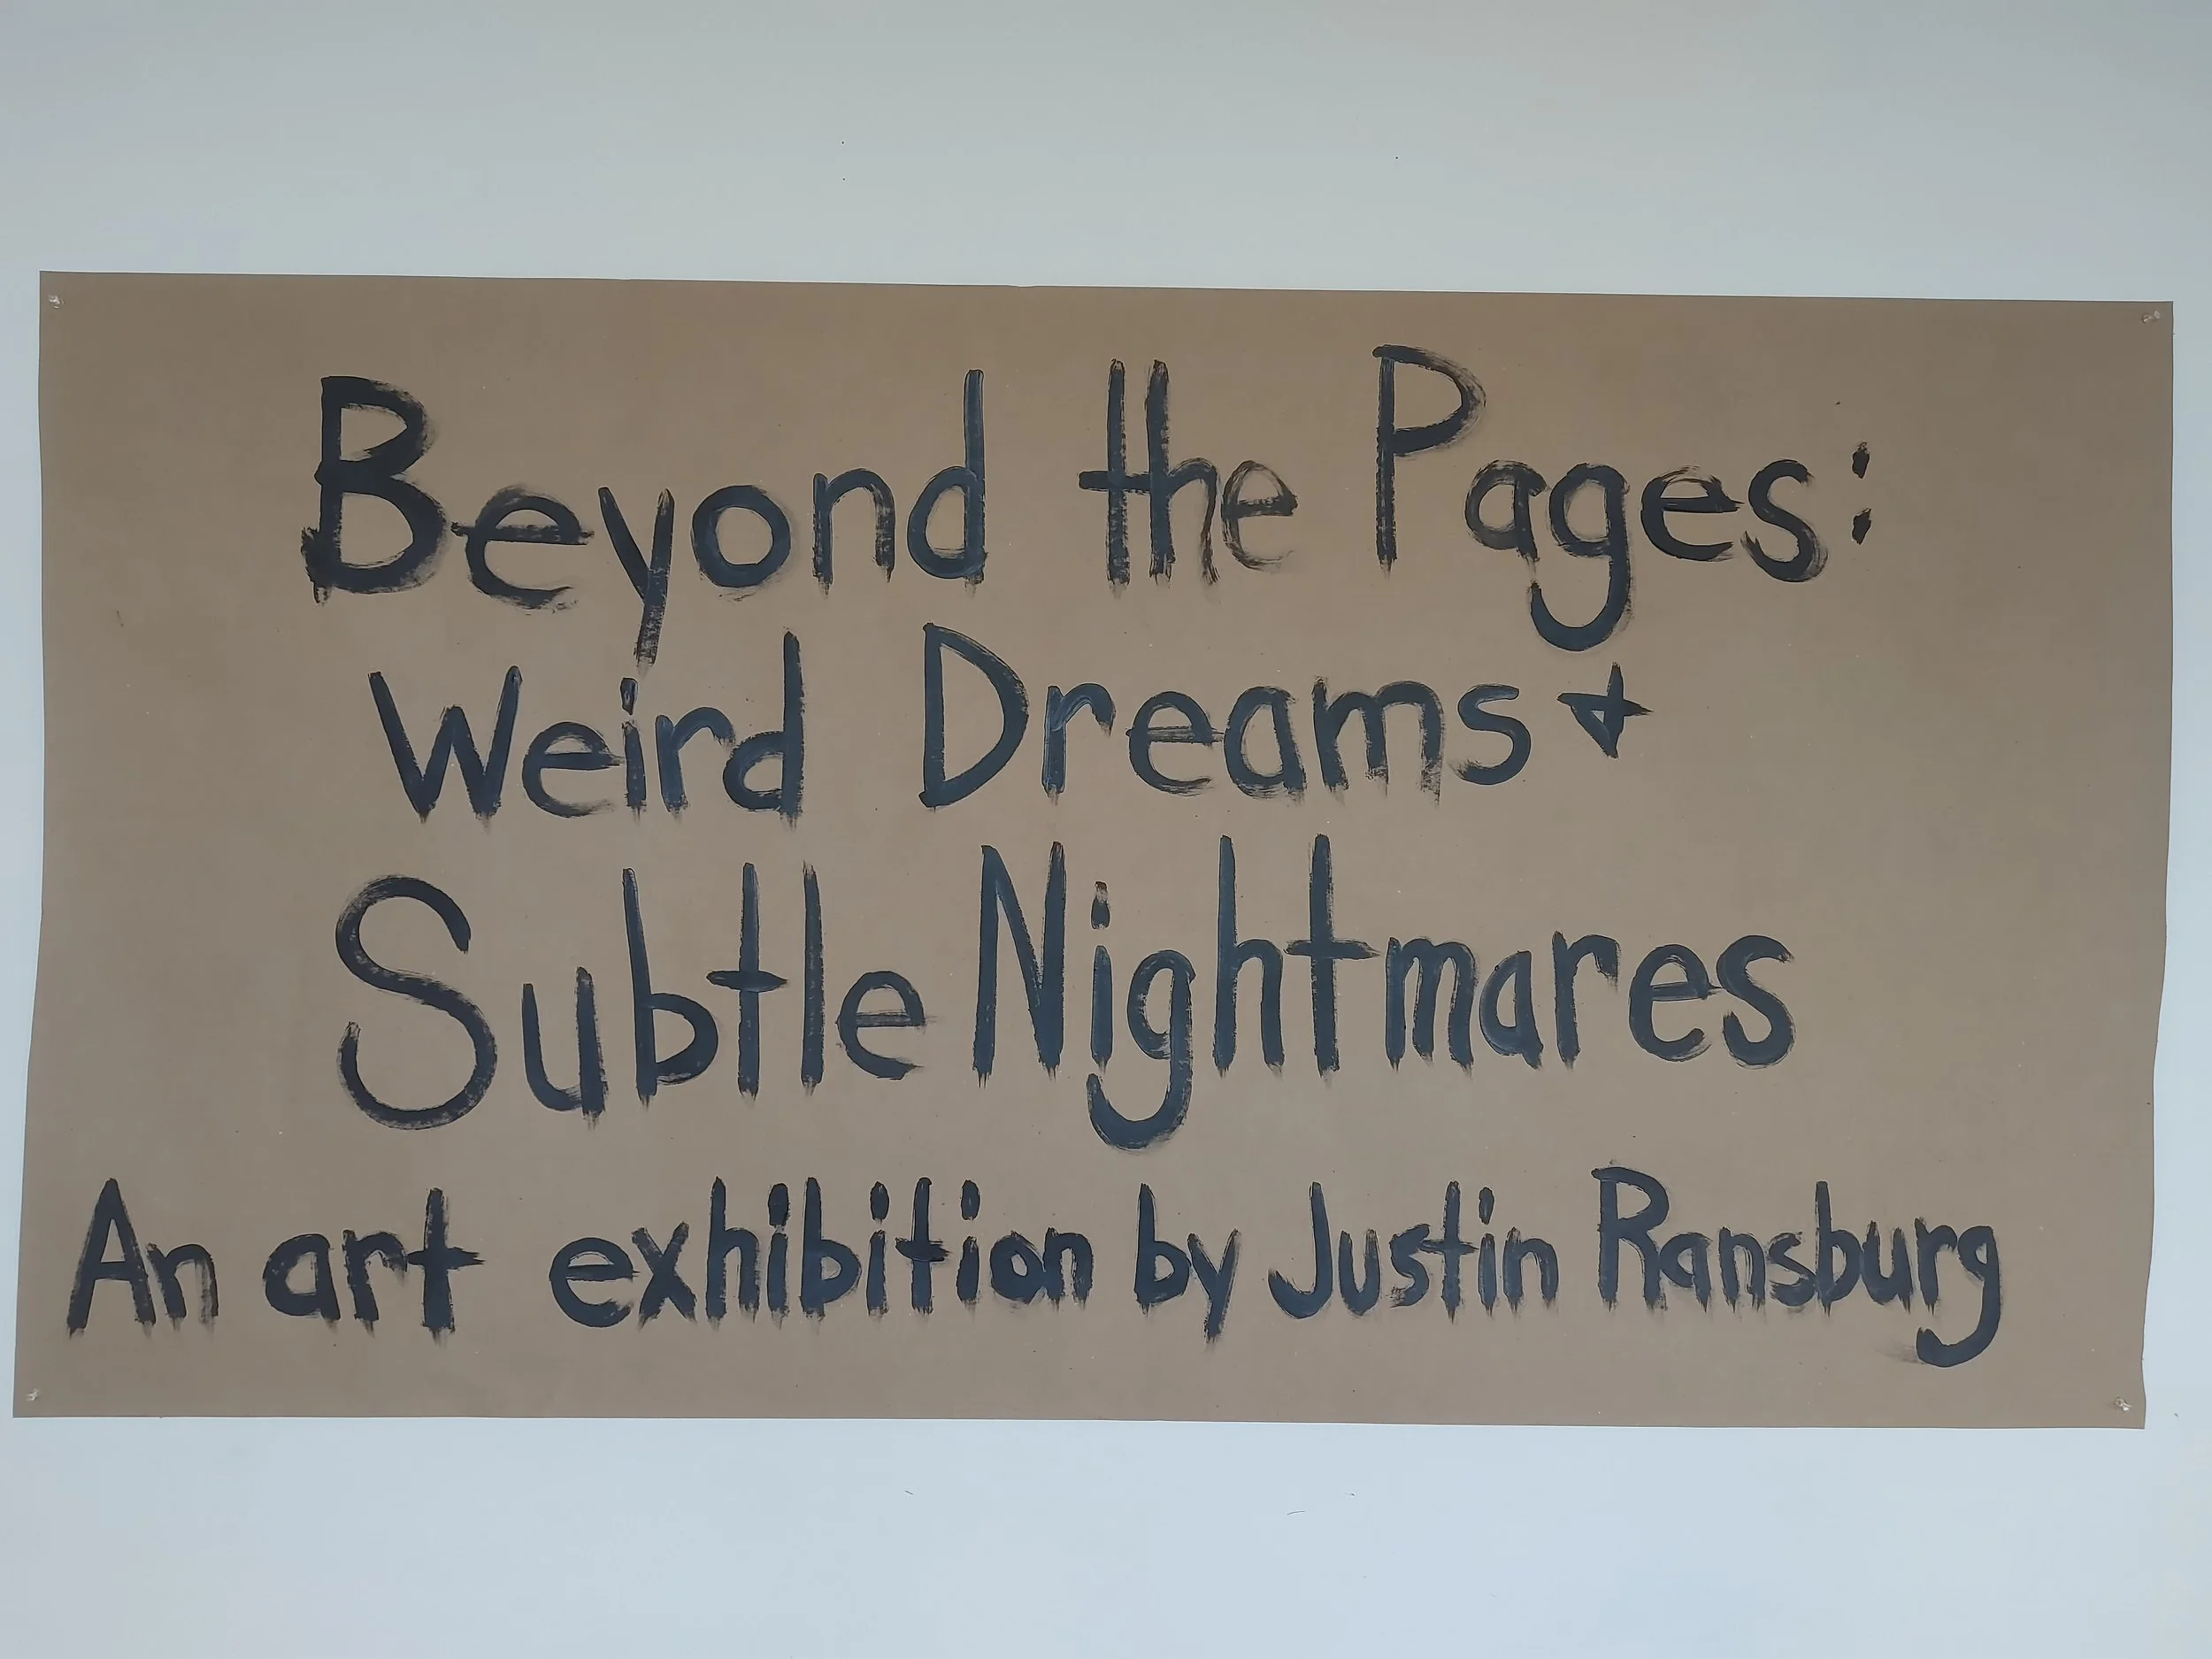 Beyond the Pages:
Weird Dreams +
Subtle Nightmares
An art exhibition by Justin Ransburg